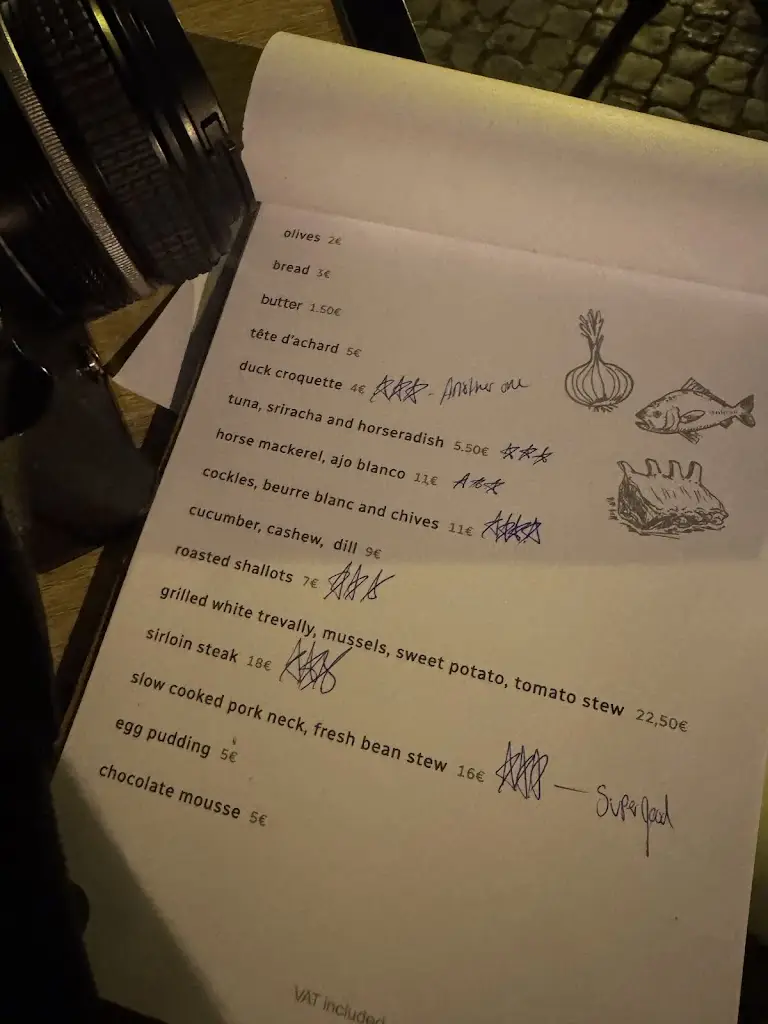 olives 2€
bread 3€
butter 1.50€
tête d'achard 5€
duck croquette 4€ - Another one
tuna, sriracha and horseradish 5.50€
horse mackerel, ajo blanco 11€
cockles, beurre blanc and chives 11€
cucumber, cashew, dill 9€
roasted shallots 7€
grilled white trevally, mussels, sweet potato, tomato stew 22,50€
sirloin steak 18€
slow cooked pork neck, fresh bean stew 16€ — Supergood
egg pudding 5€
chocolate mousse 5€
VAT included